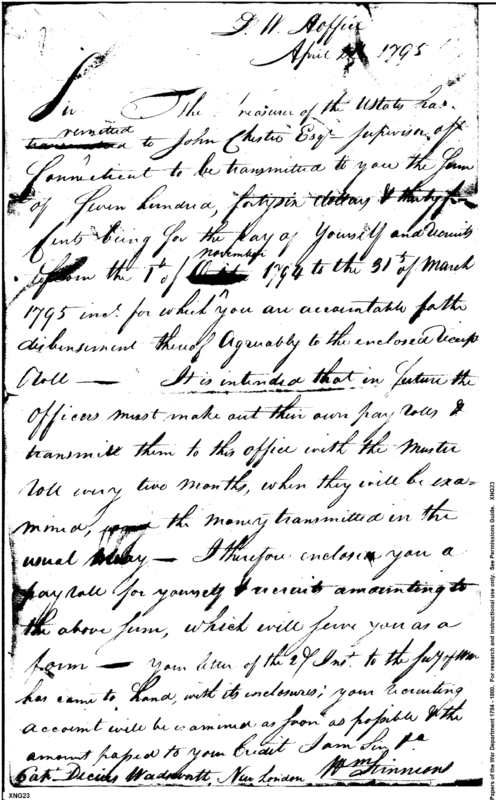 D. W. A office
April 1795
Sir The Treasurer of the U States has
remitted
to John Chester Esqr Supervisor of
Connecticut to be transmitted to you the Sum
of Seven hundred, fortysix dollars & thirty
Cents being for the pay of Yourself and recruits
november
from the 1st of 1794 to the 31st of March
1795 incl. for which you are accountable for the
disbursement thereof Agreeably to the enclosed receipt
Roll — It is intended that in future the
Officers must make out their own pay rolls &
transmitt them to this office with the Muster
roll every two months, when they will be exa-
mined, the money transmitted in the
usual way — I therefore enclose you a
pay roll for yourself & recruits amounting to
the above Sum, which will serve you as a
form — your letter of the 2d Inst. to the Secy of War
has came to hand, with its enclosures; your recruiting
account will be examined as soon as possible & the
amount passed to your Credit I am Sir &a
Wm Simmons
Capt. Decius Wadsworth, New London
XNG23
Papers of the War Department 1784 - 1800. For research and instructional use only. See Permissions Guide. XNG23